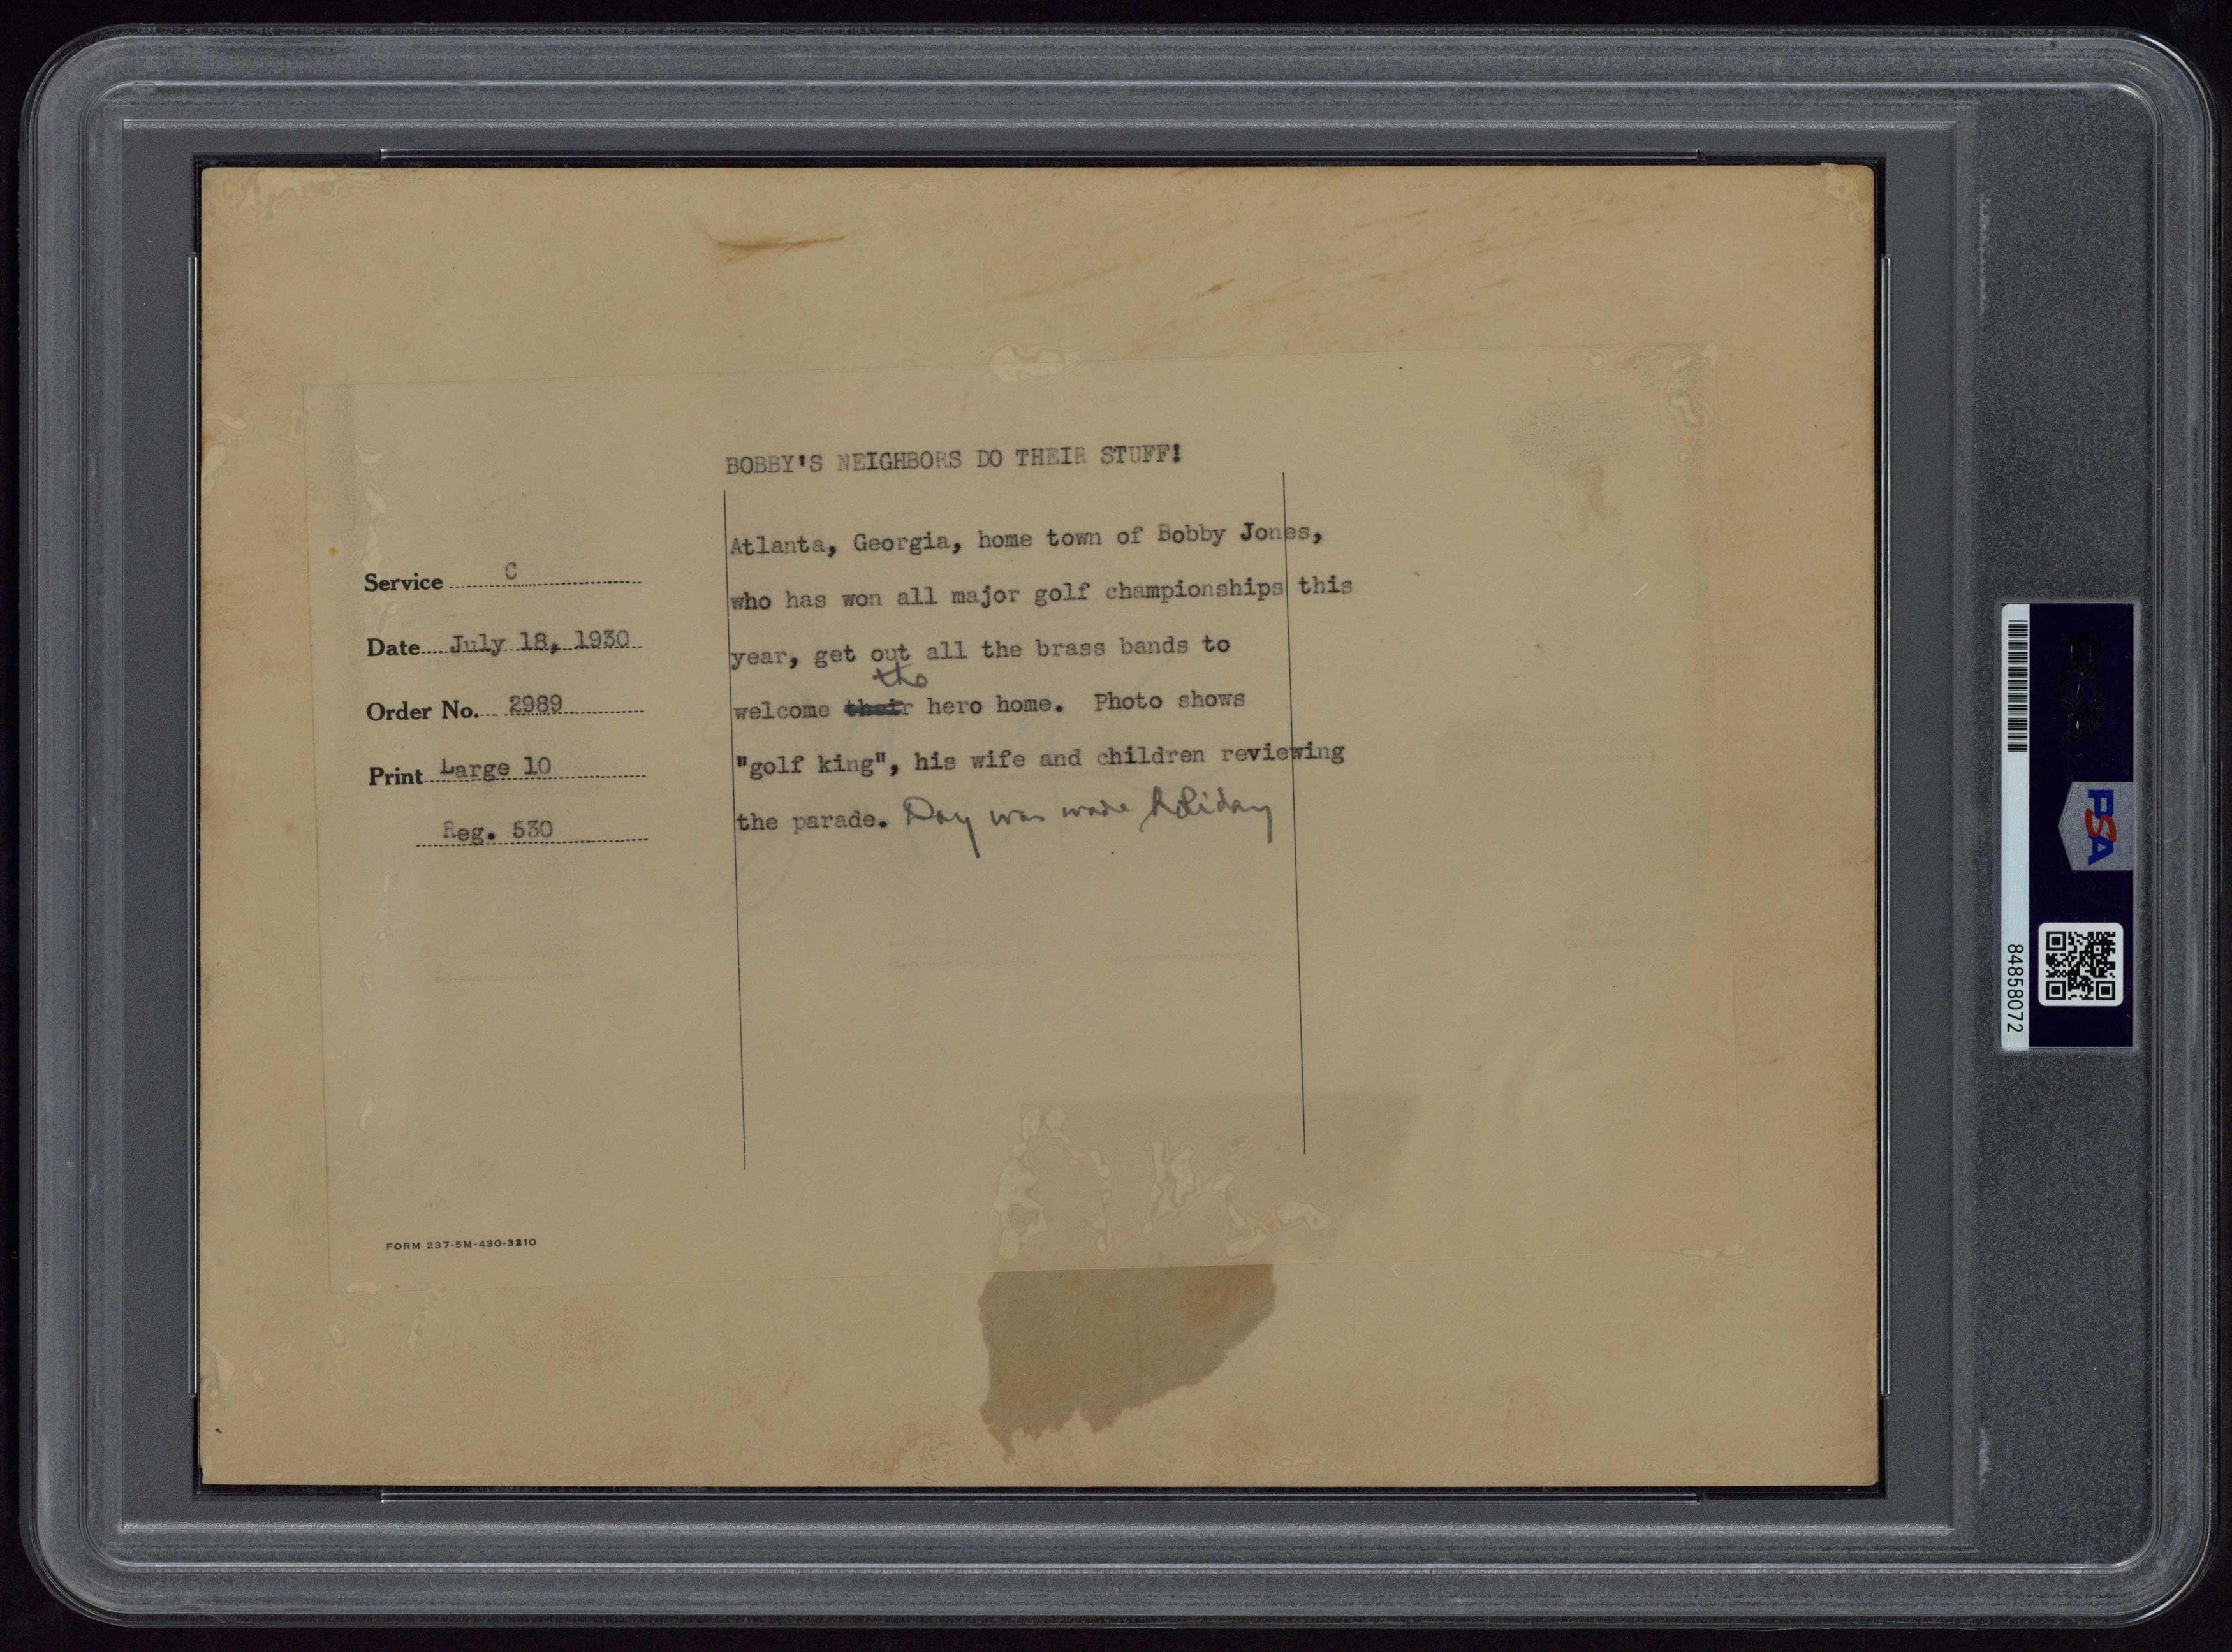 BOBBY'S NEIGHBORS DO THEIR STUFF!
Atlanta, Georgia, home town of Bobby Jones,
who has won all major golf championships this
year, get out all the brass bands to
the
welcome their hero home. Photo shows
"golf king", his wife and children reviewing
the parade. Day was made holiday
Service C
Date July 18, 1930
Order No. 2989
Print Large 10
Reg. 530
FORM 237-5M-430-3210
PSA
84858072